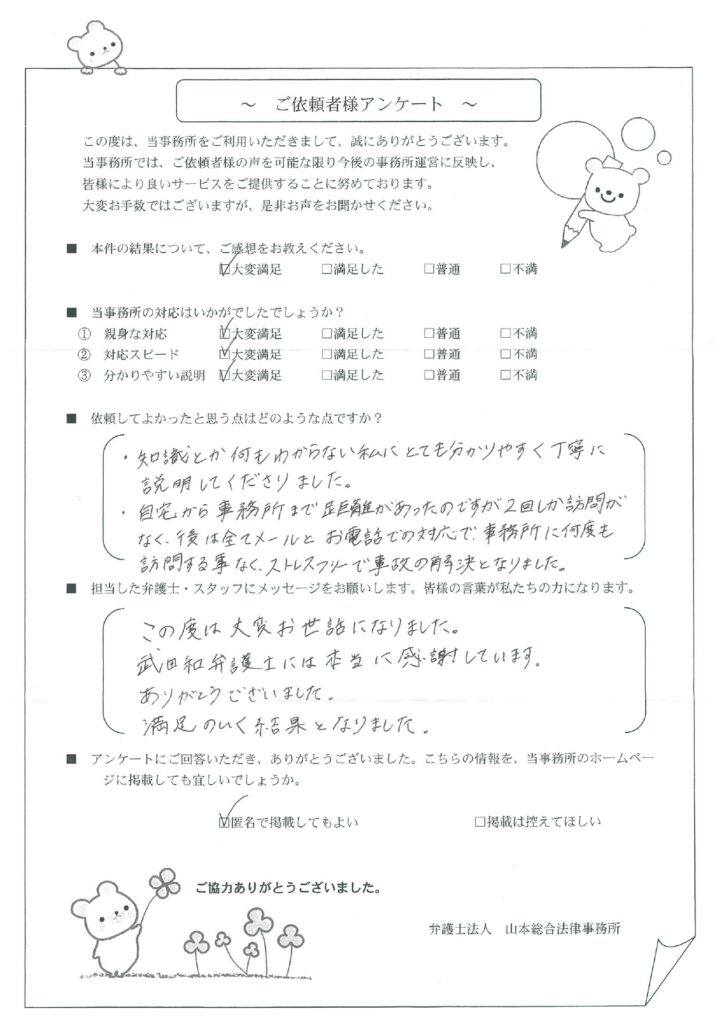 ～ ご依頼者様アンケート ～
この度は、当事務所をご利用いただきまして、誠にありがとうございます。
当事務所では、ご依頼者様の声を可能な限り今後の事務所運営に反映し、
皆様により良いサービスをご提供することに努めております。
大変お手数ではございますが、是非お声をお聞かせください。
■ 本件の結果について、ご感想をお教えください。
☑大変満足 □満足した □普通 □不満
■ 当事務所の対応はいかがでしたでしょうか？
① 親身な対応 ☑大変満足 □満足した □普通 □不満
② 対応スピード ☑大変満足 □満足した □普通 □不満
③ 分かりやすい説明 ☑大変満足 □満足した □普通 □不満
■ 依頼してよかったと思う点はどのような点ですか？
・知識とか何もわからない私にとても分かりやすく丁寧に
説明してくださりました。
・自宅から事務所まで距離があったのですが2回しか訪問が
なく、後は全てメールとお電話での対応で、事務所に何度も
訪問する事なく、ストレスフリーで事故の解決となりました。
■ 担当した弁護士・スタッフにメッセージをお願いします。皆様の言葉が私たちの力になります。
この度は大変お世話になりました。
武田和弁護士には本当に感謝しています。
ありがとうございました。
満足のいく結果となりました。
■ アンケートにご回答いただき、ありがとうございました。こちらの情報を、当事務所のホームペー
ジに掲載しても宜しいでしょうか。
☑匿名で掲載してもよい □掲載は控えてほしい
ご協力ありがとうございました。
弁護士法人 山本総合法律事務所